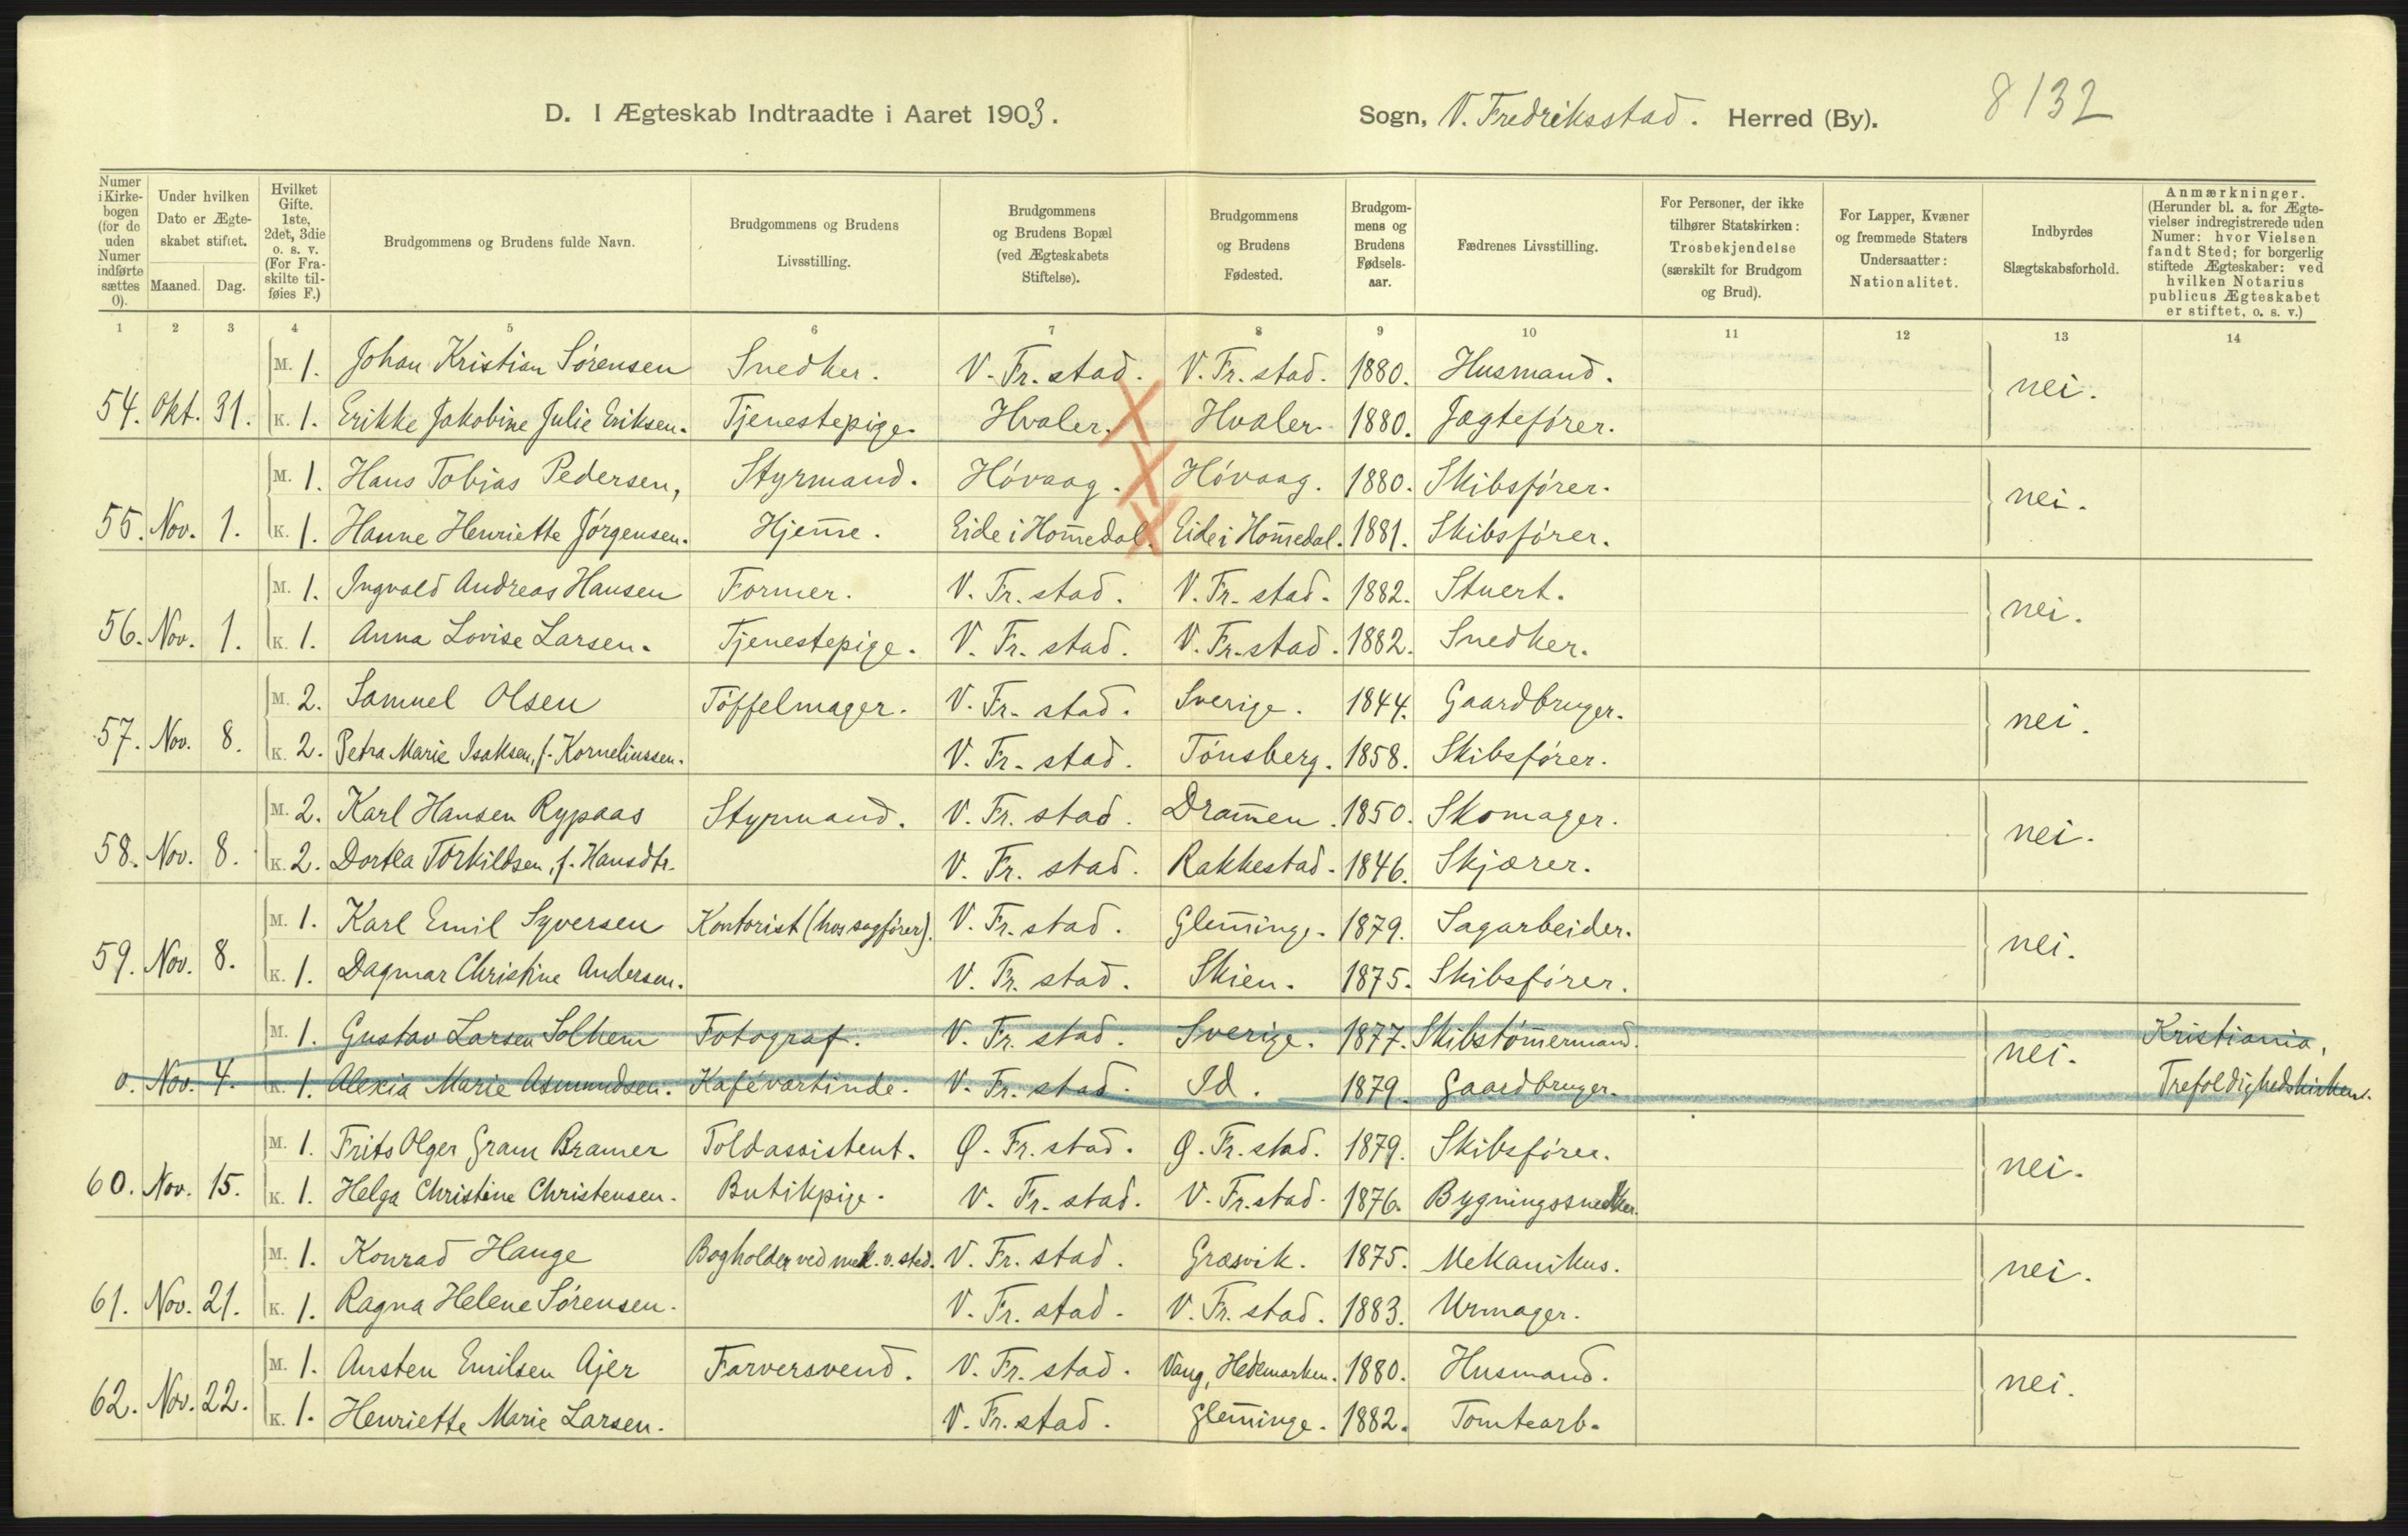 D. I Ægteskab Indtraadte i Aaret 1903. Sogn, V. Fredriksstad. Herred (By). 8132
Numer i Kirke-bogen (for de uden Numer indførte sættes 0).
Under hvilken Dato er Ægte-skabet stiftet.
Maaned. Dag.
Hvilket Gifte. 1ste, 2det, 3die o. s. v. (For Fra-skilte til-føies F.)
Brudgommens og Brudens fulde Navn.
Brudgommens og Brudens Livsstilling.
Brudgommens og Brudens Bopæl (ved Ægteskabets Stiftelse).
Brudgommens og Brudens Fødested.
Brudgom-mens og Brudens Fødsels-aar.
Fædrenes Livsstilling.
For Personer, der ikke tilhører Statskirken: Trosbekjendelse (særskilt for Brudgom og Brud).
For Lapper, Kvæner og fremmede Staters Undersaatter: Nationalitet.
Indbyrdes Slægtskabsforhold.
Anmærkninger. (Herunder bl. a. for Ægte-vielser indregistrerede uden Numer: hvor Vielsen fandt Sted; for borgerlig stiftede Ægteskaber: ved hvilken Notarius publicus Ægteskabet er stiftet, o. s. v.)
1 2 3 4 5 6 7 8 9 10 11 12 13 14
M. 1. Johan Kristian Sørensen Snedker. V. Fr. stad. V. Fr. stad. 1880. Husmand. nei.
54. Okt. 31. K. 1. Erikke Jakobine Julie Eriksen. Tjenestepige. Hvaler. Hvaler. 1880. Jægtefører.
M. 1. Hans Tobias Pedersen, Styrmand. Høvaag. Høvaag. 1880. Skibsfører. nei.
55. Nov. 1. K. 1. Hanne Henriette Jørgensen. Hjem̅e. Eide i Hom̅edal. Eide i Hom̅edal. 1881. Skibsfører.
M. 1. Ingvald Andreas Hansen Former. V. Fr. stad. V. Fr. stad. 1882. Stuert. nei.
56. Nov. 1. K. 1. Anna Lovise Larsen. Tjenestepige. V. Fr. stad. V. Fr. stad. 1882. Snedker.
M. 2. Samuel Olsen Tøffelmager. V. Fr. stad. Sverige. 1844. Gaardbruger. nei.
57. Nov. 8. K. 2. Petra Marie Isaksen, f. Korneliussen. V. Fr. stad. Tønsberg. 1858. Skibsfører.
M. 2. Karl Hansen Rypaas Styrmand. V. Fr. stad. Dram̅en. 1850. Skomager. nei.
58. Nov. 8. K. 2. Dortea Torkildsen, f. Hansdtr. V. Fr. stad. Rakkestad. 1846. Skjærer.
M. 1. Karl Emil Syversen Kontorist (hos sagfører). V. Fr. stad. Glem̅inge. 1879. Sagarbeider. nei.
59. Nov. 8. K. 1. Dagmar Christine Andersen. V. Fr. stad. Skien. 1875. Skibsfører.
M. 1. Gustav Larsen Solhem Fotograf. V. Fr. stad. Sverige. 1877. Skibstøm̅ermand. nei. Kristiania,
0. Nov. 4. K. 1. Alexia Marie Asmundsen. Kafévartinde. V. Fr. stad. Id. 1879. Gaardbruger. Trefoldighedskirken.
M. 1. Frits Olger Gram Bramer Toldassistent. Ø. Fr. stad. Ø. Fr. stad. 1879. Skibsfører. nei.
60. Nov. 15. K. 1. Helga Christine Christensen. Butikpige. V. Fr. stad. V. Fr. stad. 1876. Bygningssnedker.
M. 1. Konrad Hauge Bogholder ved mek. v. sted. V. Fr. stad. Græsvik. 1875. Mekanikus. nei.
61. Nov. 21. K. 1. Ragna Helene Sørensen. V. Fr. stad. V. Fr. stad. 1883. Urmager.
M. 1. Austen Emilsen Ajer Farversvend. V. Fr. stad. Vang, Hedemarken. 1880. Husmand. nei.
62. Nov. 22. K. 1. Henriette Marie Larsen. V. Fr. stad. Glem̅inge. 1882. Tomtearb.